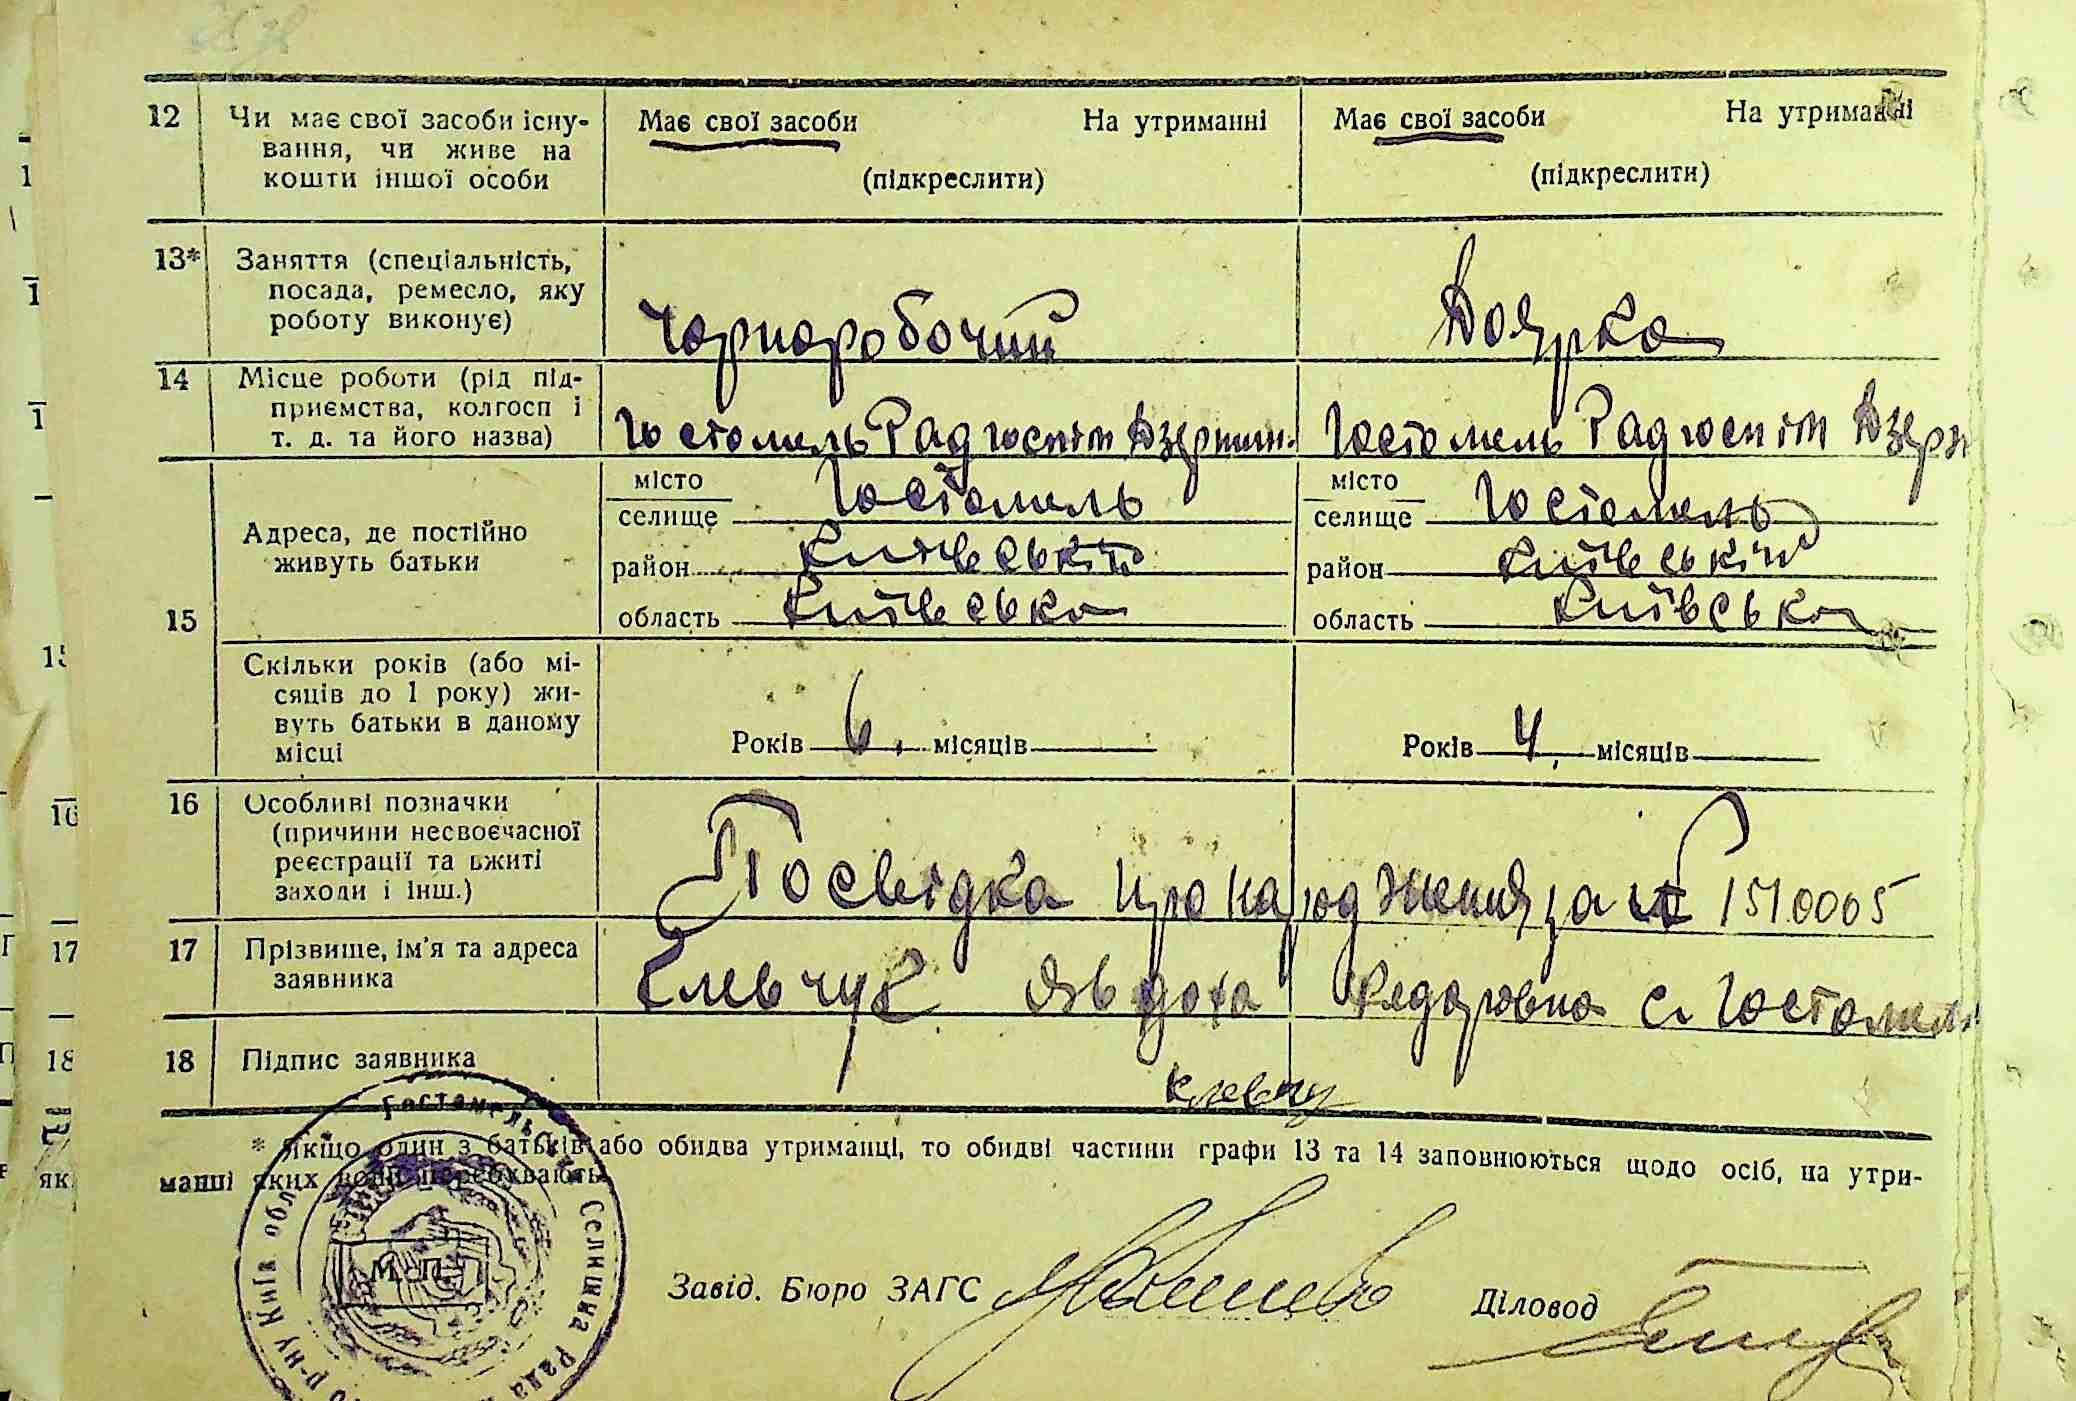 12 Чи має свої засоби існу- Має свої засоби На утриманні Має свої засоби На утриманні
вання, чи живе на
кошти іншої особи (підкреслити) (підкреслити)
13* Заняття (спеціальність,
посада, ремесло, яку
роботу виконує) Чорноробочий Доярка
14 Місце роботи (рід під-
приємства, колгосп і
т. д. та його назва) Гостомель Радгоспім Дзержин. Гостомель Радгоспім Дзерж
15 Адреса, де постійно
живуть батьки
місто
селище Гостомель
район Київський
область Київська
місто
селище Гостомель
район Київський
область Київська
Скільки років (або мі-
сяців до 1 року) жи-
вуть батьки в даному
місці
Років 6, місяців
Років 4, місяців
16 Особливі позначки
(причини несвоєчасної
реєстрації та вжиті
заходи і інш.)
Посвідка про народження за № 1510005
17 Прізвище, ім'я та адреса
заявника
Клевчук Явдоха Федоровна с. Гостомель
18 Підпис заявника Клевчу
* Якщо один з батьків або обидва утриманці, то обидві частини графи 13 та 14 заповнюються щодо осіб, на утри-
манні яких вони перебувають.
Гостомельська Селищна Рада р-ну Київ обл.
М П
Завід. Бюро ЗАГС
Діловод